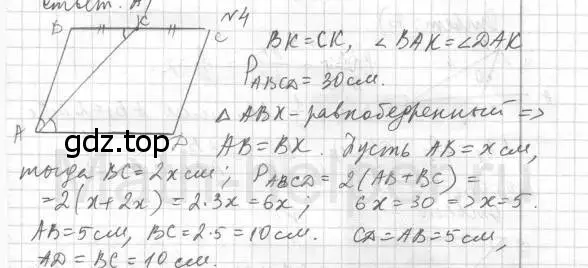 ответ. А)
№4
B K C
BK = CK, ∠BAK = ∠DAK
P_ABCD = 30 см.
△ ABK - равнобедренный =>
A D
gdz.top
AB = BK. Пусть AB = x см,
тогда BC = 2x см; P_ABCD = 2(AB + BC) =
= 2(x + 2x) = 2·3x = 6x; 6x = 30 => x = 5.
AB = 5 см, BC = 2·5 = 10 см. CD = AB = 5 см,
AD = BC = 10 см.